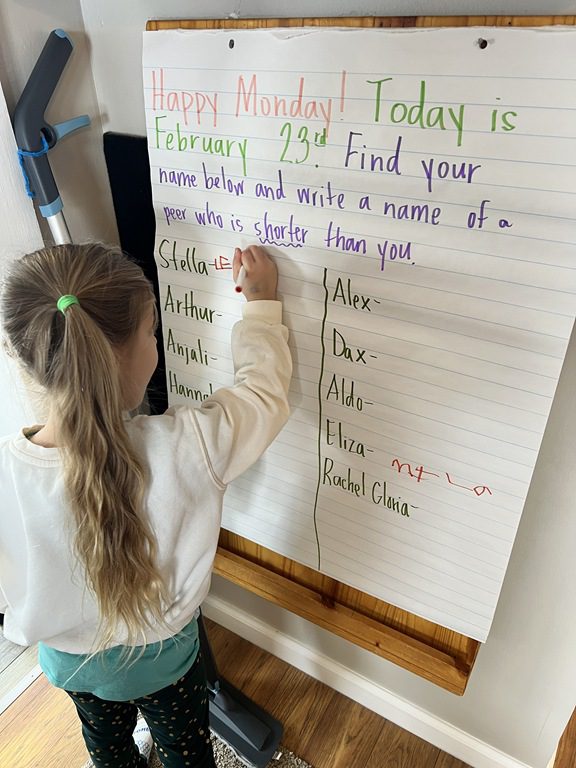 Happy Monday! Today is
February 23rd. Find your
name below and write a name of a
peer who is shorter than you.
Stella-
Arthur-
Anjali-
Alex-
Dax-
Aldo-
Eliza-
Rachel Gloria-